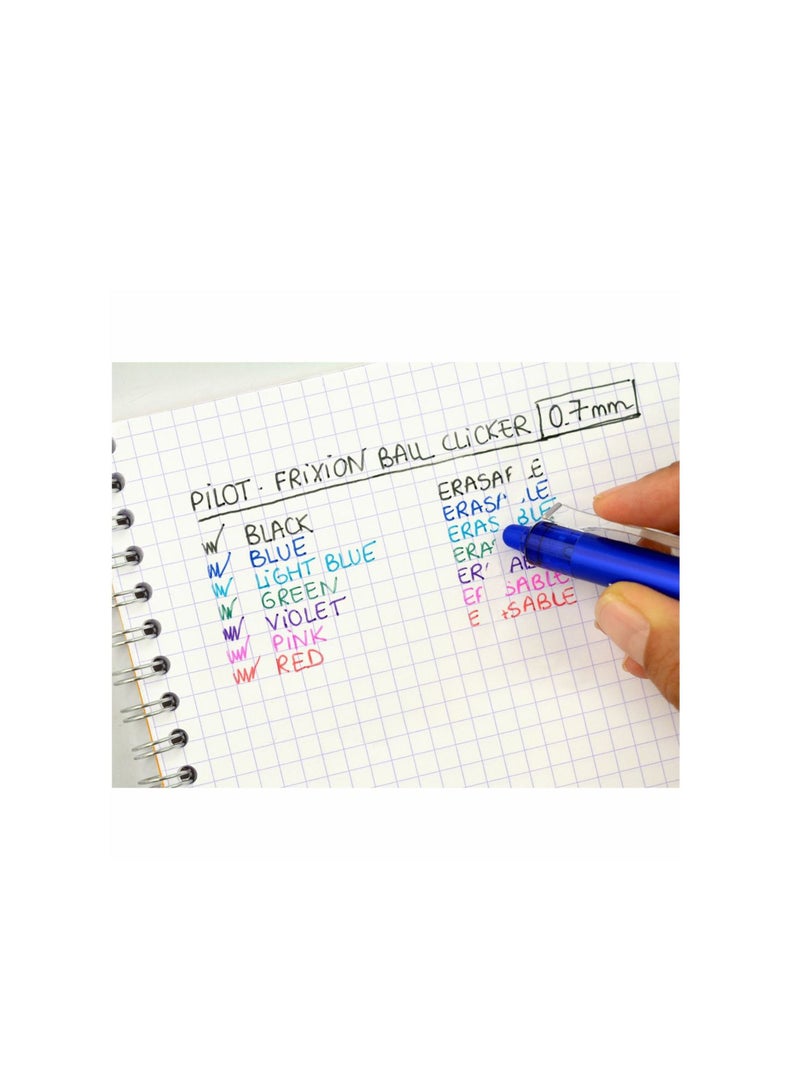 PiLOT · FRiXiON BALL CLiCKER 0.7mm
BLACK
BLUE
LiGHT BLUE
GREEN
ViOLET
PiNK
RED
ERASA E
ERAS LE
ERAS BLE
ERA
ER A
E SABLE
E SABLE